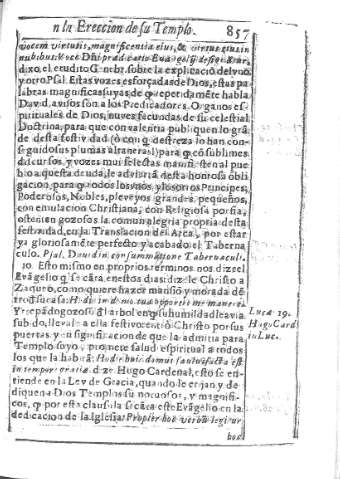 n la Ereccion de su Templo. 857
vocem virtutis, magnificentia eius, & virtus eius in
nubibus. Vocẽ Dñi prædicatio Evãgelij designatur,
dixo el erudito Genebr. sobre la explicaciõ del vno,
y otro Psal. Estas vozes esforçadas de Dios, estas pa
labras magnificas suyas, de que repetidamẽte habla
David, avisos son a los Predicadores, Organos es-
pirituales de Dios, nuves fecundas de su celestial
Doctrina, para que con valentia publiquen lo grã-
de desta festividad (ò con q̃ destreza lo han con-
seguido sus plumas al traneras!) para q̃ cõ sublimes
discursos, y vozes muy selectas manifiesten al pue
blo a questa deuda, le advierta desta honrosa obli
gacion, para q̃ todos los mos, y los otros Principes,
Poderosos, Nobles, pleveyos grandes, pequeños,
con emulacion Christiana, con Religiosa porfia,
ostenten gozosos la comun alegria propria desta
festividad, en la Translacion del Arca, por estar
ya gloriosamẽte perfecto y acabado el Taberna
culo. Psal. David in consummatione Tabernaculi.
10 Esto mismo en proprios terminos nos dize el
Evãgelio q̃ se cãta en estos dias: dizele Christo a
Zaqueo, como quiere hazer mansiõ y morada dẽ-
tro de su casa: Hodie in domo tua oportet me manere.
Y trepãdo gozoso al arbol en q̃ su humildad le avia
subido, lleva le a ella festivo centrò Christo por sus
puertas, y en significacion de que la admitia para
Templo suyo, promete salud espiritual a todos
los que la habitã: Hodie huic domui salus facta est
in tempore gratiæ. dize Hugo Cardenal, esto se en-
tiende en la Ley de Gracia, quando le erijan, y de-
diquen a Dios Templos sumptuosos, y magnifi-
cos, q̃ por esta clausula se cãta este Evãgelio en la
dedicacion de la Iglesia: Propter hoc verbũ legitur
hoc
Luca 19.
Hugo Card
in Luc.